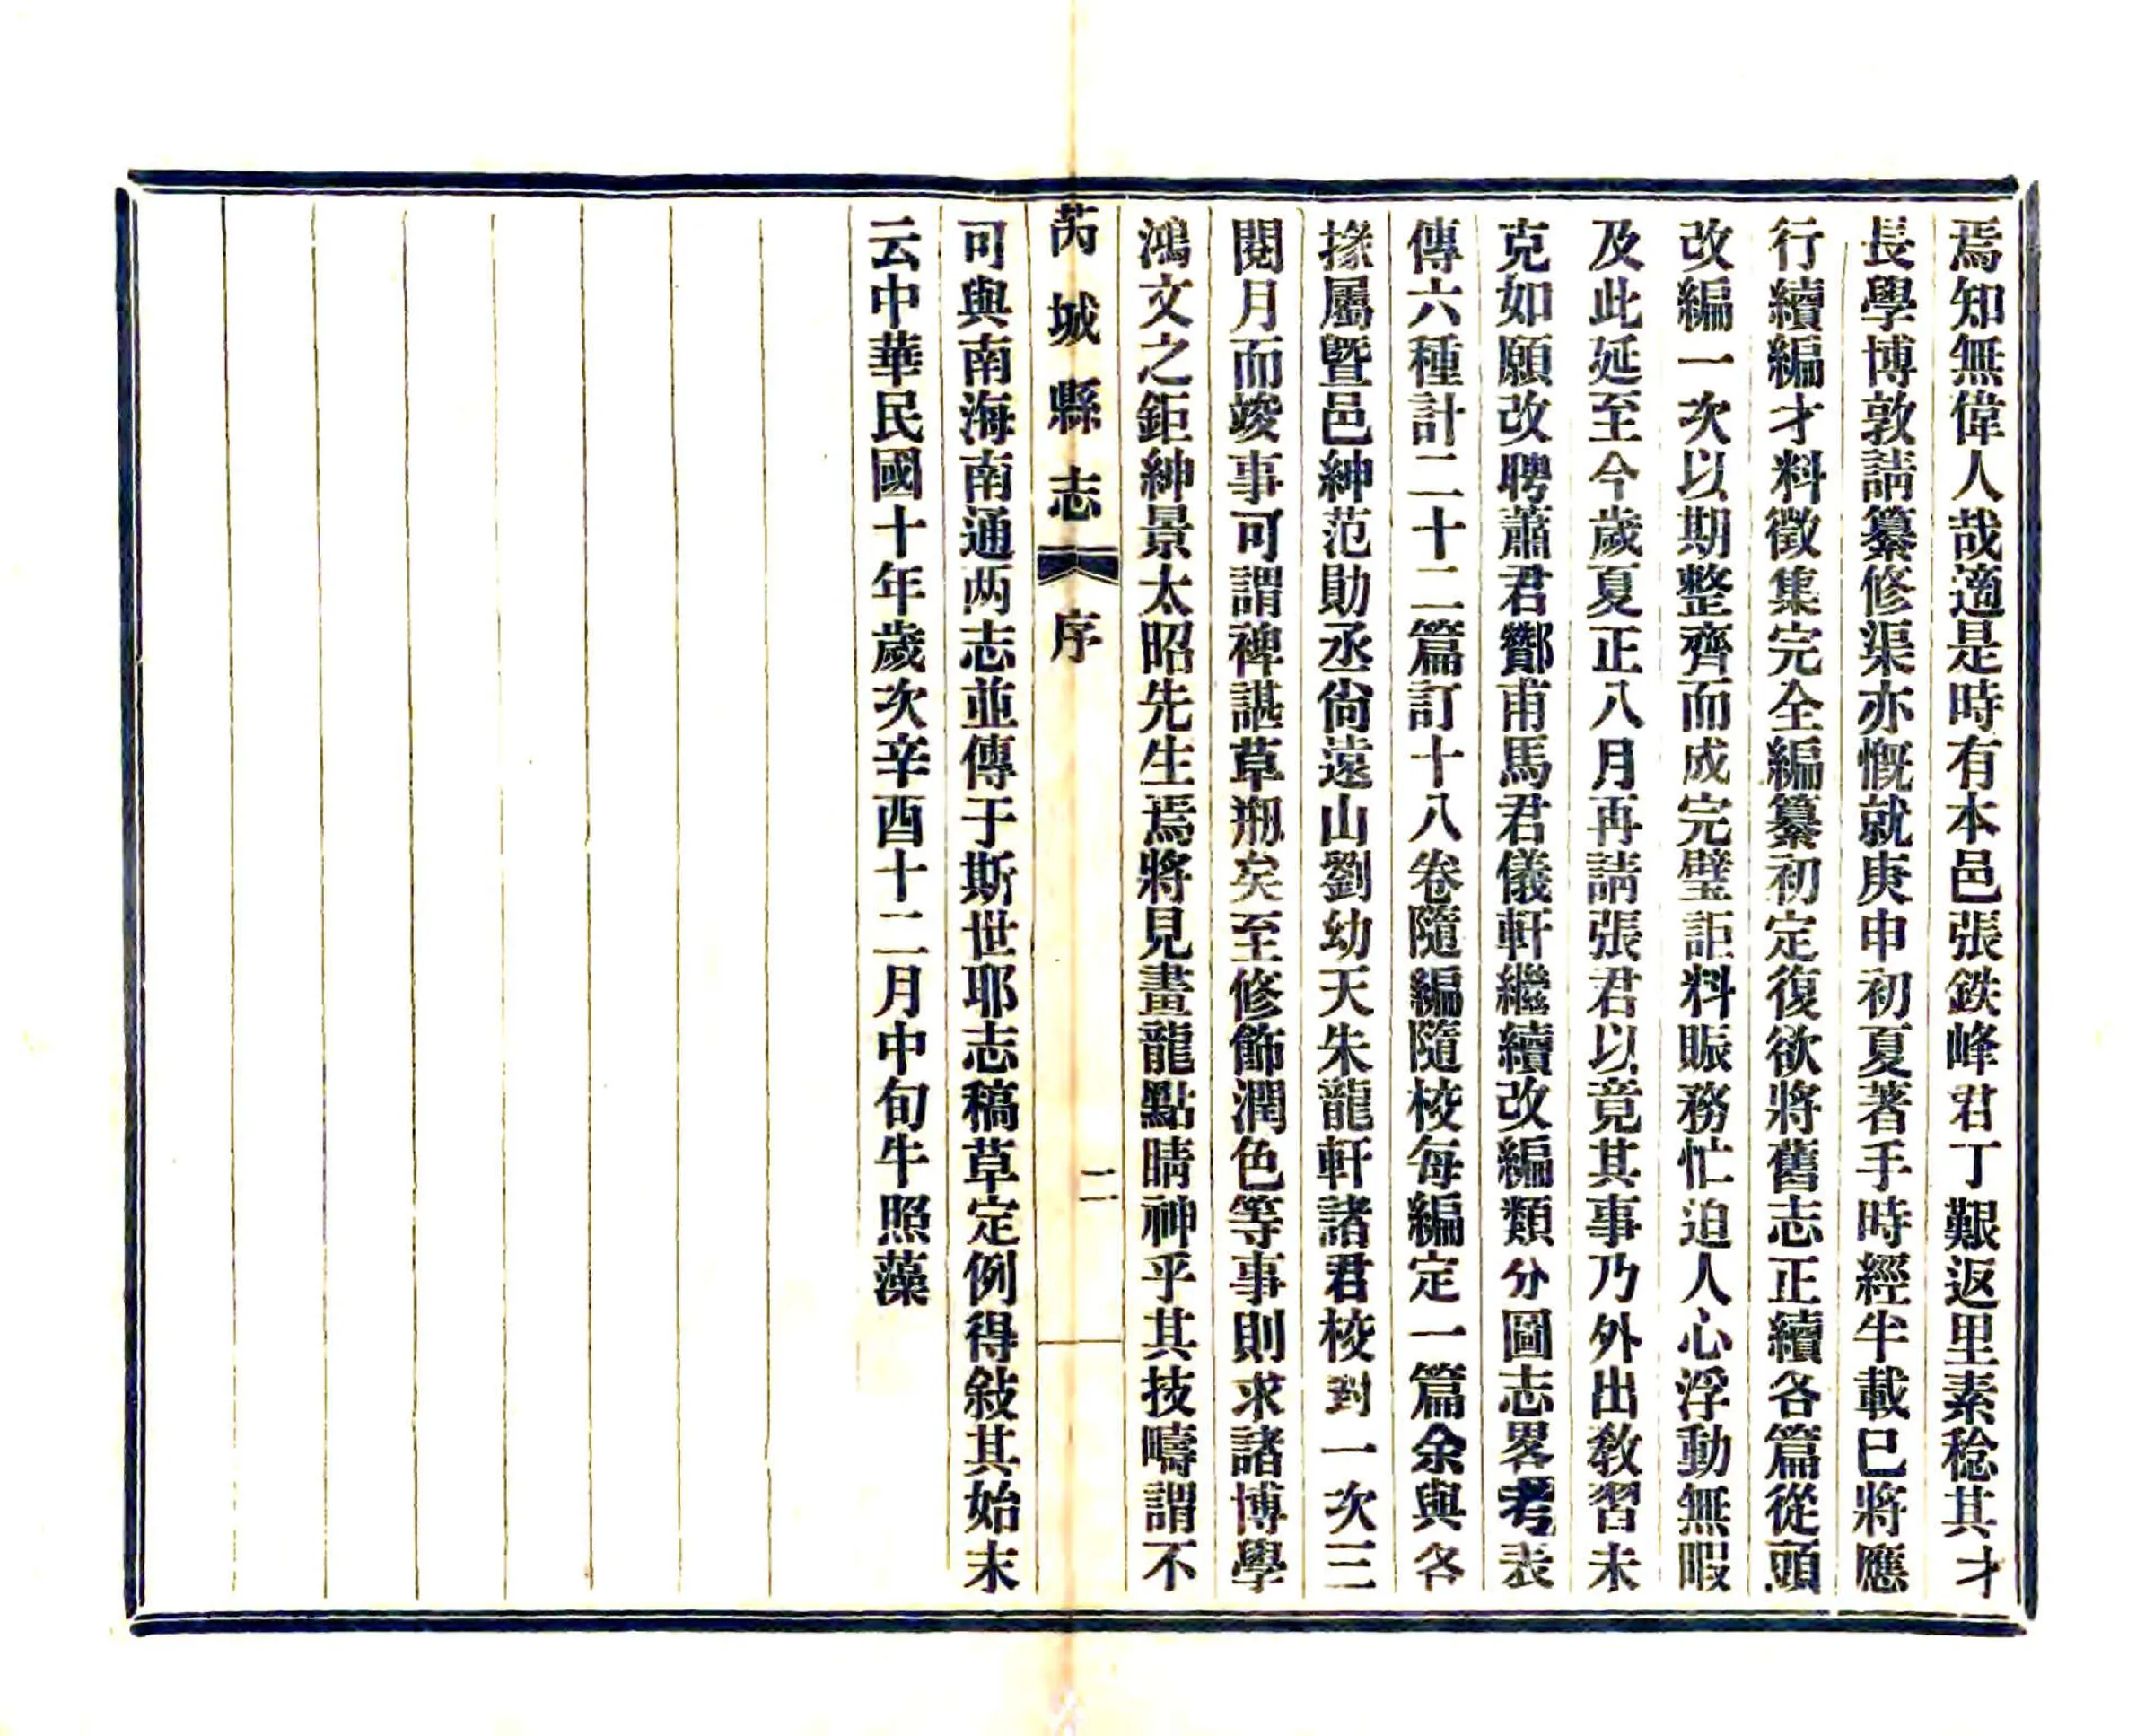 焉知無偉人哉適是時有本邑張鉄峰君丁艱返里素稔其才
長學博敦請纂修渠亦慨就庚申初夏著手時經半載已將應
行續編才料徵集完全編纂初定復欲將舊志正續各篇從頭
改編一次以期整齊而成完璧詎料賑務忙迫人心浮動無暇
及此延至今歲夏正八月再請張君以竟其事乃外出教習未
克如願改聘蕭君酇甫馬君儀軒繼續改編類分圖志畧考表
傳六種計二十二篇訂十八卷隨編隨校每編定一篇余與各
掾屬暨邑紳范勛丞尙遠山劉幼天朱龍軒諸君校對一次三
閱月而竣事可謂裨諶草剏矣至修飾潤色等事則求諸博學
鴻文之鉅紳景太昭先生焉將見畫龍點睛神乎其技疇謂不
芮城縣志 序 二
可與南海南通两志並傳于斯世耶志稿草定例得敍其始末
云中華民國十年歲次辛酉十二月中旬牛照藻